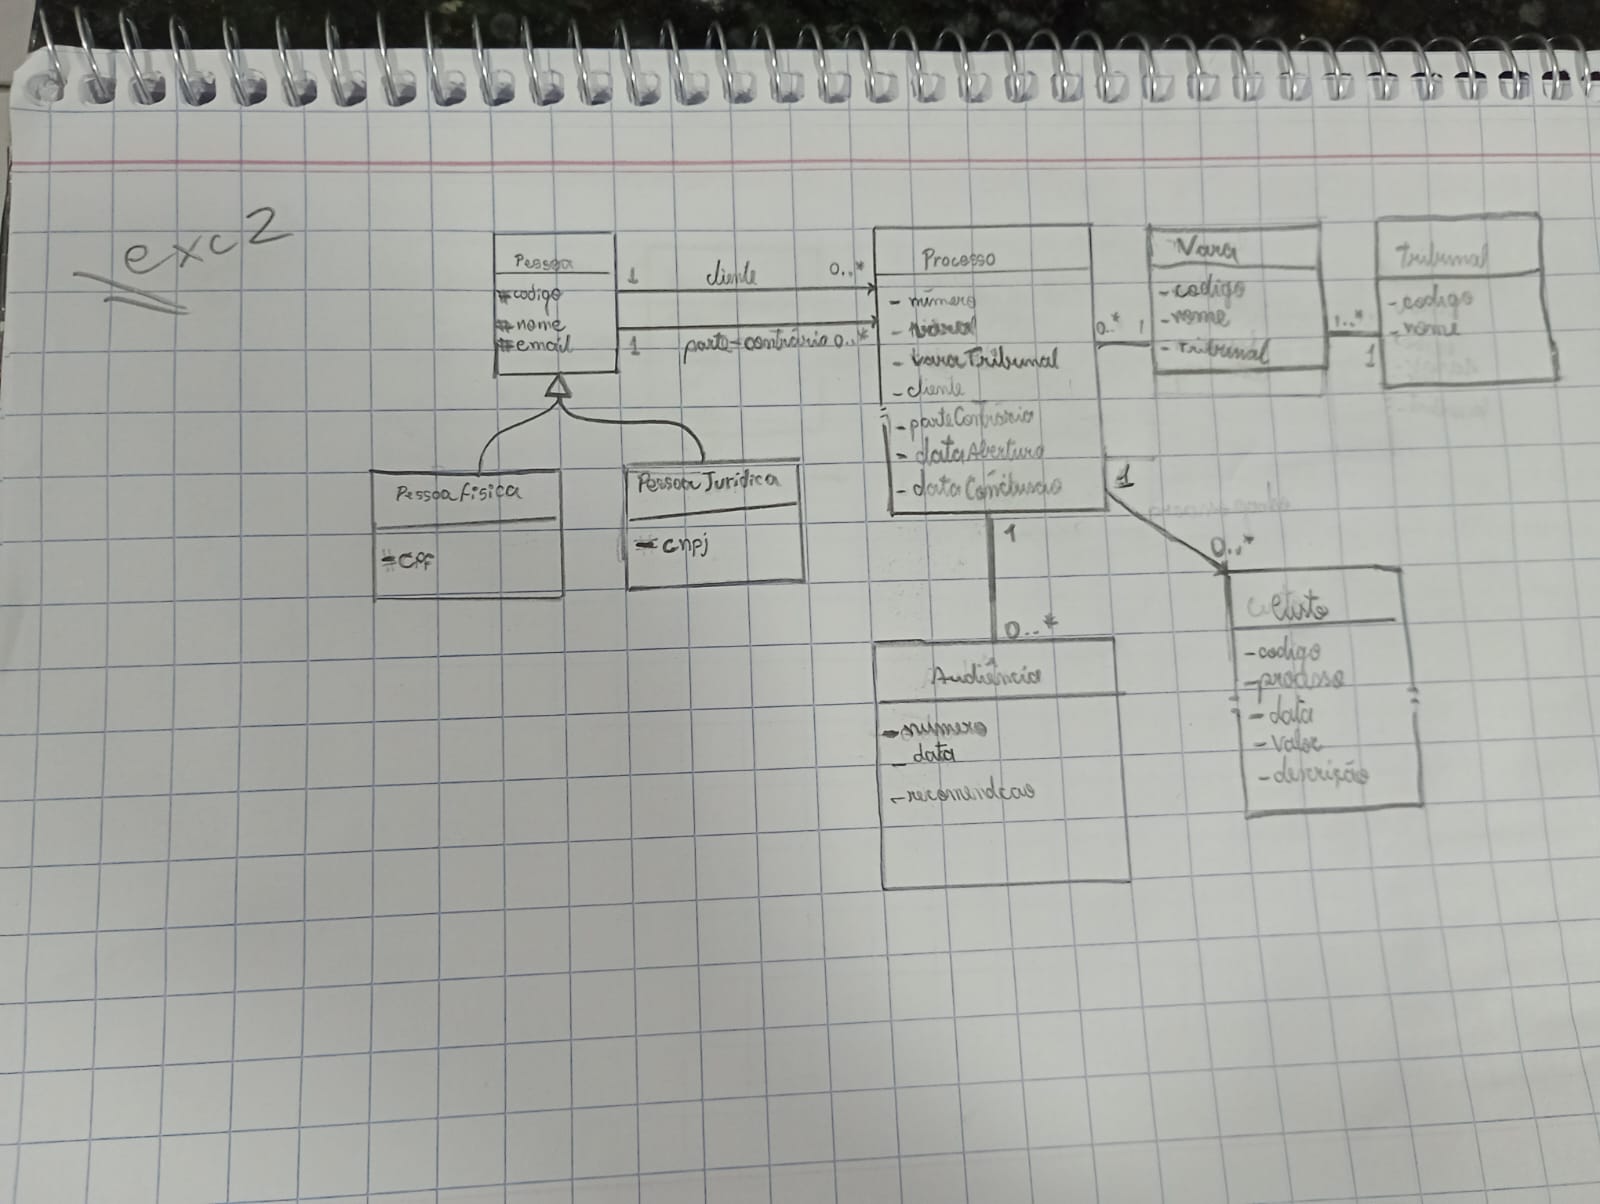 exc2
Pessoa
#codigo
#nome
#email
1 cliente 0..*
1 parte-contrária 0..*
Processo
- número
- varaTribunal
- cliente
- parteContrária
- dataAbertura
- dataConclusao
0..* 1
Vara
- codigo
- nome
- Tribunal
1..* 1
Tribunal
- codigo
- nome
Pessoa física
Pessoa Jurídica
- cnpj
1
0..*
1
0..*
Audiência
- número
- data
- recomendcao
- codigo
- processo
- data
- valor
- descrição